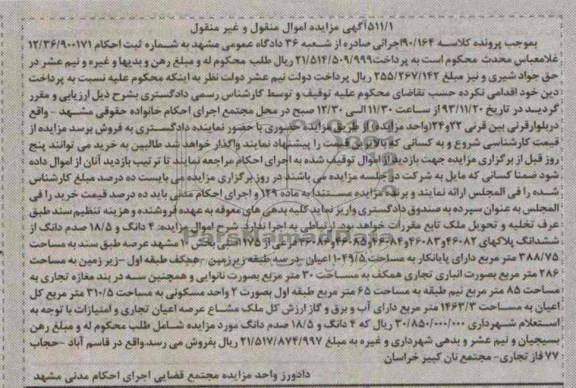 ۵۱۱/۱آگهی مزایده اموال منقول و غیر منقول
بموجب پرونده کلاسه ۹۰/۱۶۴اجرائی صادره از شعبه ۳۶ دادگاه عمومی مشهد به شماره ثبت احکام ۱۲/۳۶/۹۰۰۱۷۱
غلامعباس محدث محکوم است به پرداخت۲۱/۵۱۴/۵۰۹/۹۹۹ ریال طلب محکوم له و مبلغ رهن و بدیها و غیره و نیم عشر در
حق جواد شیری و نیز مبلغ ۲۵۵/۲۶۷/۱۴۲ ریال پرداخت دولت نیم عشر دولت نظر به اینکه محکوم علیه نسبت به پرداخت
دین خود اقدامی نکرده حسب تقاضای محکوم علیه توقیف و توسط کارشناس رسمی دادگستری بشرح ذیل ارزیابی و مقرر
گردید در تاریخ ۹۳/۱۱/۲۰ از ساعت ۱۱/۳۰ الی ۱۲/۳۰ صبح در محل مجتمع اجرای احکام خانواده حقوقی مشهد - واقع
دربلوارقرنی بین قرنی ۳۲و۳۴(واحد مزایده) از طریق مزایده حضوری با حضور نماینده دادگستری به فروش برسد مزایده از
قیمت کارشناسی شروع و به کسانی که بالاترین قیمت را پیشنهاد نمایند واگذار خواهد شد طالبین به خرید می توانند پنج
روز قبل از برگزاری مزایده جهت بازدید از اموال توقیف شده به اجرای احکام مراجعه نمایند تا ترتیب بازدید آنان از اموال داده
شود ضمنا کسانی که مایل به شرکت در جلسه مزایده می باشند در روز برگزاری مزایده می بایست ده درصد مبلغ کارشناس
شده را فی المجلس ارائه نمایند و برنده مزایده مستندا به ماده ۱۲۹ و اجرای احکام مدنی باید ده درصد قیمت خرید را فی
المجلس به عنوان سپرده به صندوق دادگستری واریز نماید کلیه بدهی های معوقه به عهده فروشنده و هزینه تنظیم سند طبق
عرف تخلیه و تحویل ملک تابع مقررات خواهد بود ارتباطی به اجرا ندارد. شرح اموال مزایده: ۴ دانگ و ۱۸/۵ صدم دانگ از
ششدانگ پلاکهای ۴۶۰۸۲و۴۶۰۸۳و۴۶۰۸۴و۴۶۰۸۵و۴۶۰۸۶ مشهد عرصه طبق سند به مساحت
۳۸۸/۷۵ متر مربع دارای پایانکار به مساحت ۱۰۴۹/۵ اعیان در سه طبقه زیرزمین - همکف طبقه اول -زیر زمین به مساحت
۲۸۶ متر مربع بصورت انباری تجاری همکف به مساحت ۳۰ متر مربع بصورت نانوایی و همچنین سه در بند مغازه تجاری به
مساحت ۸۵ متر مربع نیم طبقه به مساحت ۶۵ متر مربع طبقه اول بصورت ۲ واحد مسکونی به مساحت ۳۱۰/۵ متر مربع کل
اعیان به مساحت ۱۴۶۳/۳ متر مربع دارای آب و برق و گاز ارزش کل ملک مشاع عرصه اعیان تجاری و امتیازات با توجه به
استعلام شهرداری ۳۰/۸۵۰/۰۰۰/۰۰۰ ریال که ۴ دانگ و ۱۸/۵ صدم دانگ مورد مزایده شامل طلب محکوم له و مبلغ رهن
بسیجیان و نیم عشر و بدهی شهرداری و غیره به مبلغ ۲۱/۵۱۷/۸۷۴/۹۹۷ ریال بفروش می رسد.واقع در قاسم آباد -حجاب
۷۷ فاز تجاری- مجتمع نان کبیر خراسان
دادورز واحد مزایده مجتمع قضایی اجرای احکام مدنی مشهد